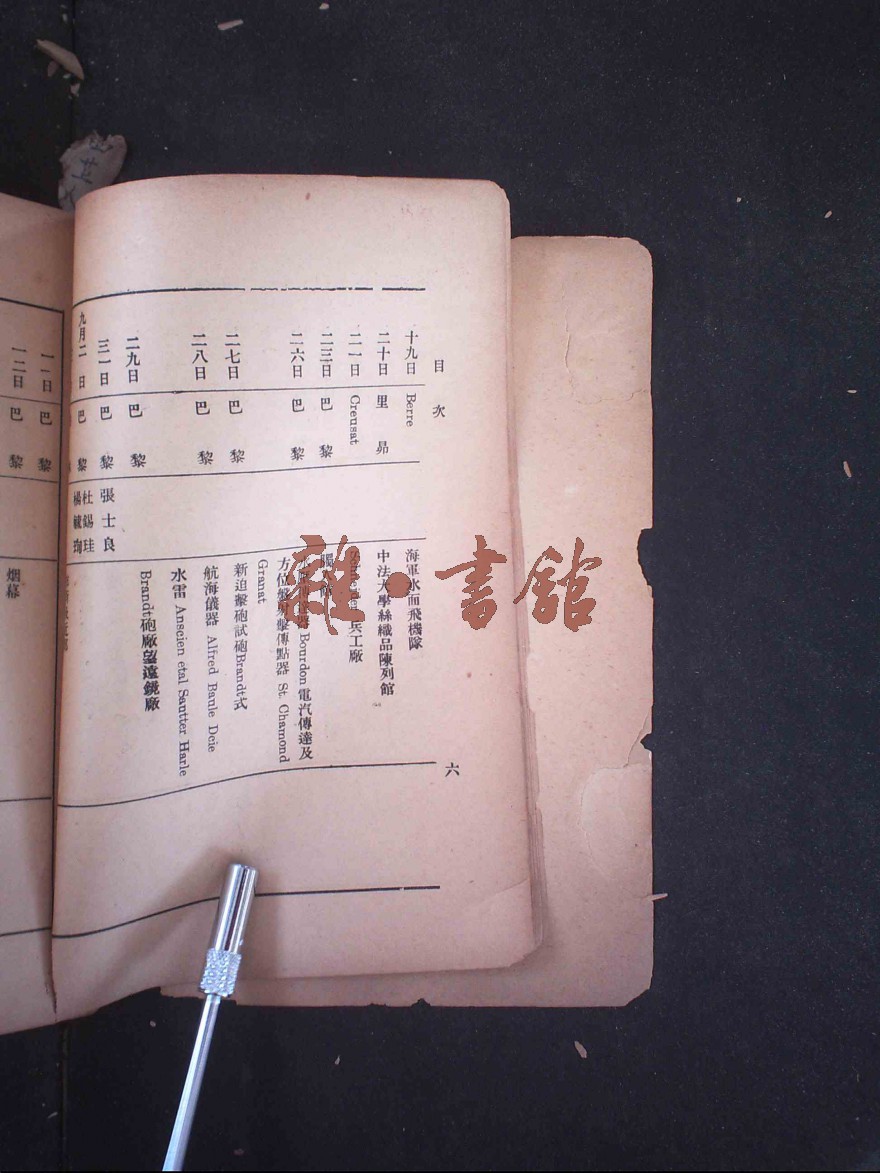 目次
六
十九日 Berre 海軍水面飛機隊
二十日 里昂 中法大學絲織品陳列館
二一日 Creusat 兵工廠
二三日 巴黎
二六日 巴黎 Bourdon 電汽傳達及
方位盤射擊傳點器 St. Chamond
Granat
二七日 巴 黎 新迫擊砲試砲Brandt式
二八日 巴 黎 航海儀器 Alfred Baule Dcie
水雷 Anscien etal Sautter Harle
二九日 巴 黎 Brandt砲廠望遠鏡廠
三一日 巴 黎 張士良
九月二日 巴 黎 杜錫珪
楊毓珣
一一日 巴 黎
一二日 巴 黎 烟幕
雜·書館